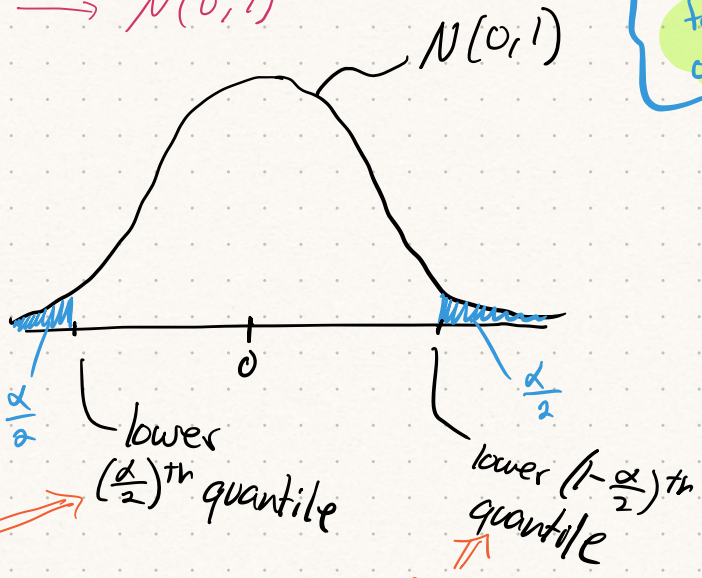 N(0,1)
N(0,1)
0
α/2
α/2
lower
(α/2)th quantile
lower (1-α/2)th
quantile